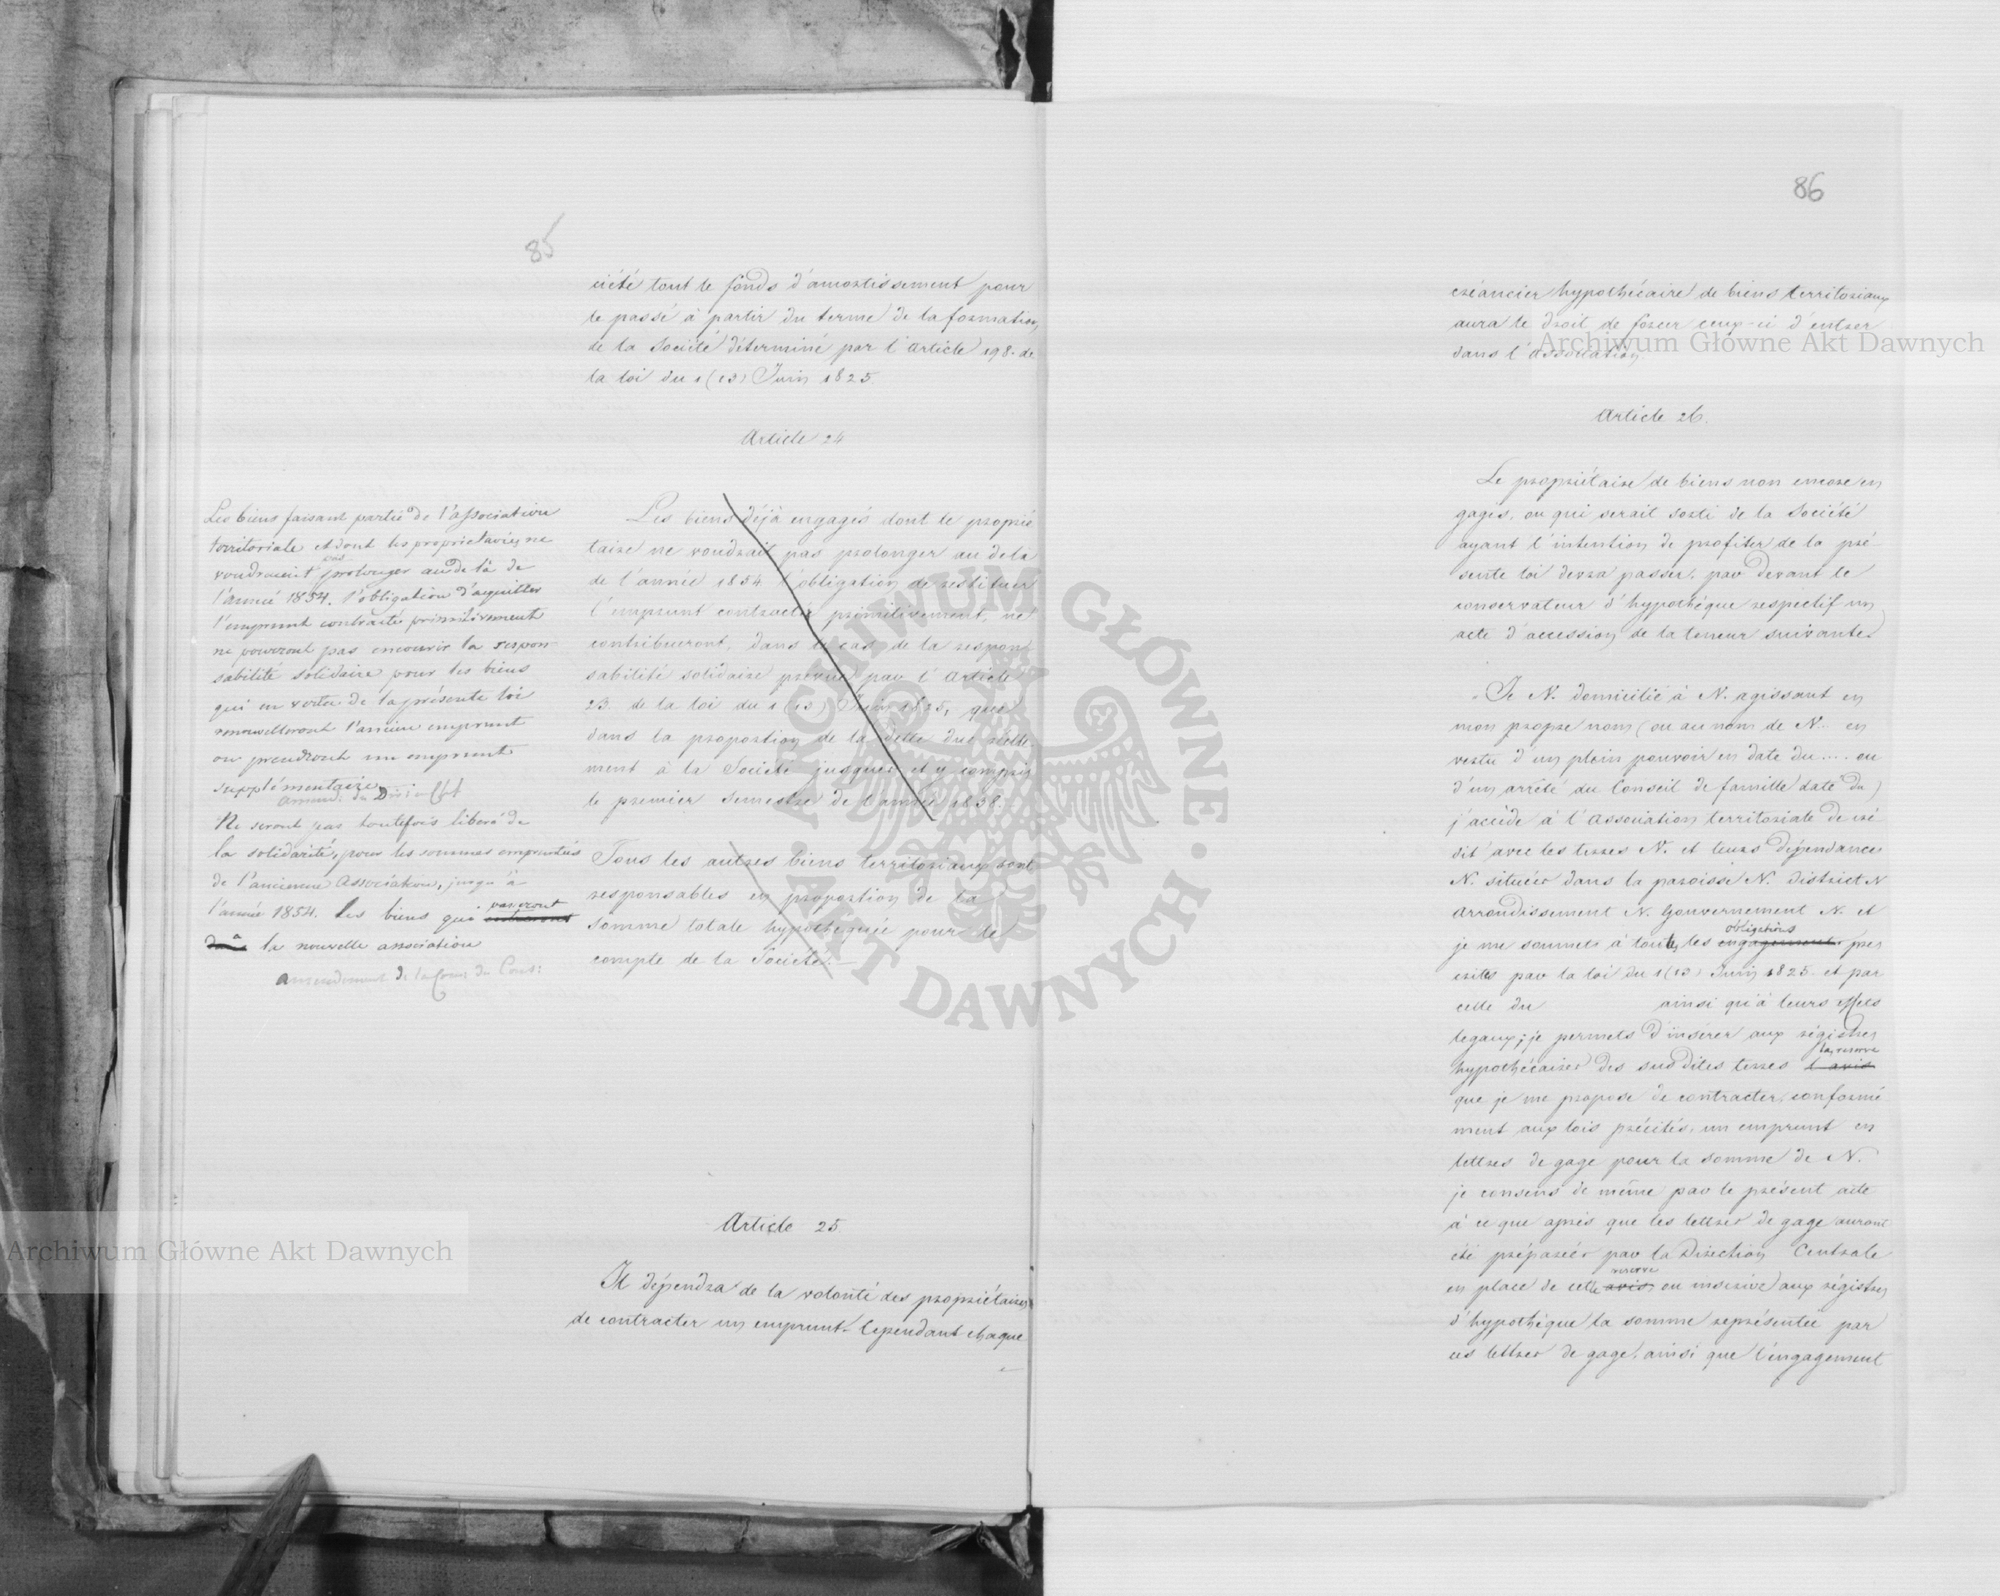 85
ciété tout le fonds d'amortissement pour
le passé à partir du terme de la formation
de la Société déterminé par l'article 198. de
la loi du 1 (13) Juin 1825.
Article 24
Les biens déjà engagés dont le proprié
taire ne voudrait pas prolonger au delà
de l'année 1854 l'obligation de restituer
l'emprunt contracté primitivement, ne
contribueront, dans le cas de la respon
sabilité solidaire prévue par l'Article
23. de la loi du 1 (13) Juin 1825, que
dans la proportion de la dette due réelle
ment à la Société jusques et y compris
le premier semestre de l'année
Tous les autres biens territoriaux sont
responsables en proportion de la
somme totale hypothéquée pour le
compte de la Société.
Les biens faisant partie de l'association
territoriale et dont les propriétaires ne
voudraient pas prolonger au delà de
l'année 1854. l'obligation d'acquitter
l'emprunt contracté primitivement
ne pourront pas encourir la respon
sabilité solidaire pour les biens
qui en vertu de la présente loi
renouvelleront l'ancien emprunt
ou prendront un emprunt
supplémentaire
Ne seront pas toutefois libéré de
la solidarité, pour les sommes empruntées
de l'ancienne Association, jusqu'à
l'année 1854. les biens qui passeront
à la nouvelle association
amendement de la du Cons:
Article 25
Il dépendra de la volonté des propriétaires
de contracter un emprunt. Cependant chaque
86
créancier hypothécaire de biens territoriaux
aura le droit de forcer ceux-ci d'entrer
dans l'association
Article 26.
Le propriétaire de biens non encore en
gagés, ou qui serait sorti de la Société
ayant l'intention de profiter de la pré
sente loi devra passer, par devant le
conservateur d'hypothèque respectif un
acte d'accession de la teneur suivante.
"Je N. domicilié à N. agissant en
mon propre nom (ou au nom de N... en
vertu d'un plein pouvoir en date du .... ou
d'un arrêté du Conseil de famille daté du)
j'accède à l'Association territoriale de cré
dit avec les terres N. et leurs dépendances
N. situées dans la paroisse N. district N
Arrondissement N. Gouvernement N. et
je me soumets à toutes les engagements obligations pres
crites par la loi du 1 (13) Juin 1825. et par
celle du ainsi qu'à leurs effets
legaux; je permets d'insérer aux régistres
hypothécaires des sus dites terres l'avis la reserve
que je me propose de contracter, conformé
ment aux lois précités, un emprunt en
lettres de gage pour la somme de N.
je consens de même par le présent acte
à ce que après que les lettres de gage auront
été préparées par la Direction Centrale
en place de cette avis reserve on inscrive aux régistres
d'hypothèque la somme représentée par
ces lettres de gage, ainsi que l'engagement
Archiwum Główne Akt Dawnych
Archiwum Główne Akt Dawnych
ARCHIWUM GŁÓWNE · AKT DAWNYCH ·